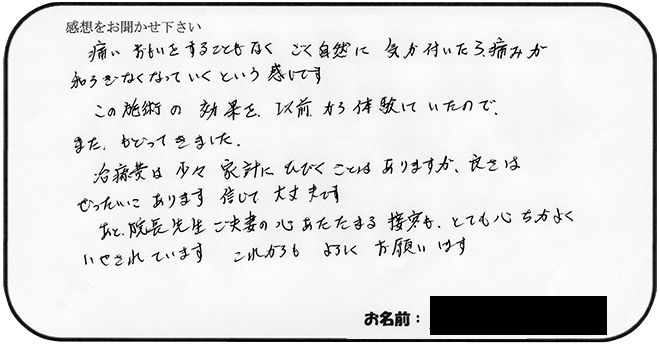 感想をお聞かせ下さい
痛い おもいをすることもなく ごく自然に 気が付いたら、痛みが
和らぎなくなっていくという感じです
この施術の 効果を、以前から体験していたので、
また、もどってきました。
治療費は 少々 家計に ひびくことは ありますが、良さは
ぜったいに あります 信じて 大丈夫です
あと、院長先生 ご夫妻の 心あたたまる 接客も、とても心ちがよく
いやされています これからも よろしく お願いします
お名前：